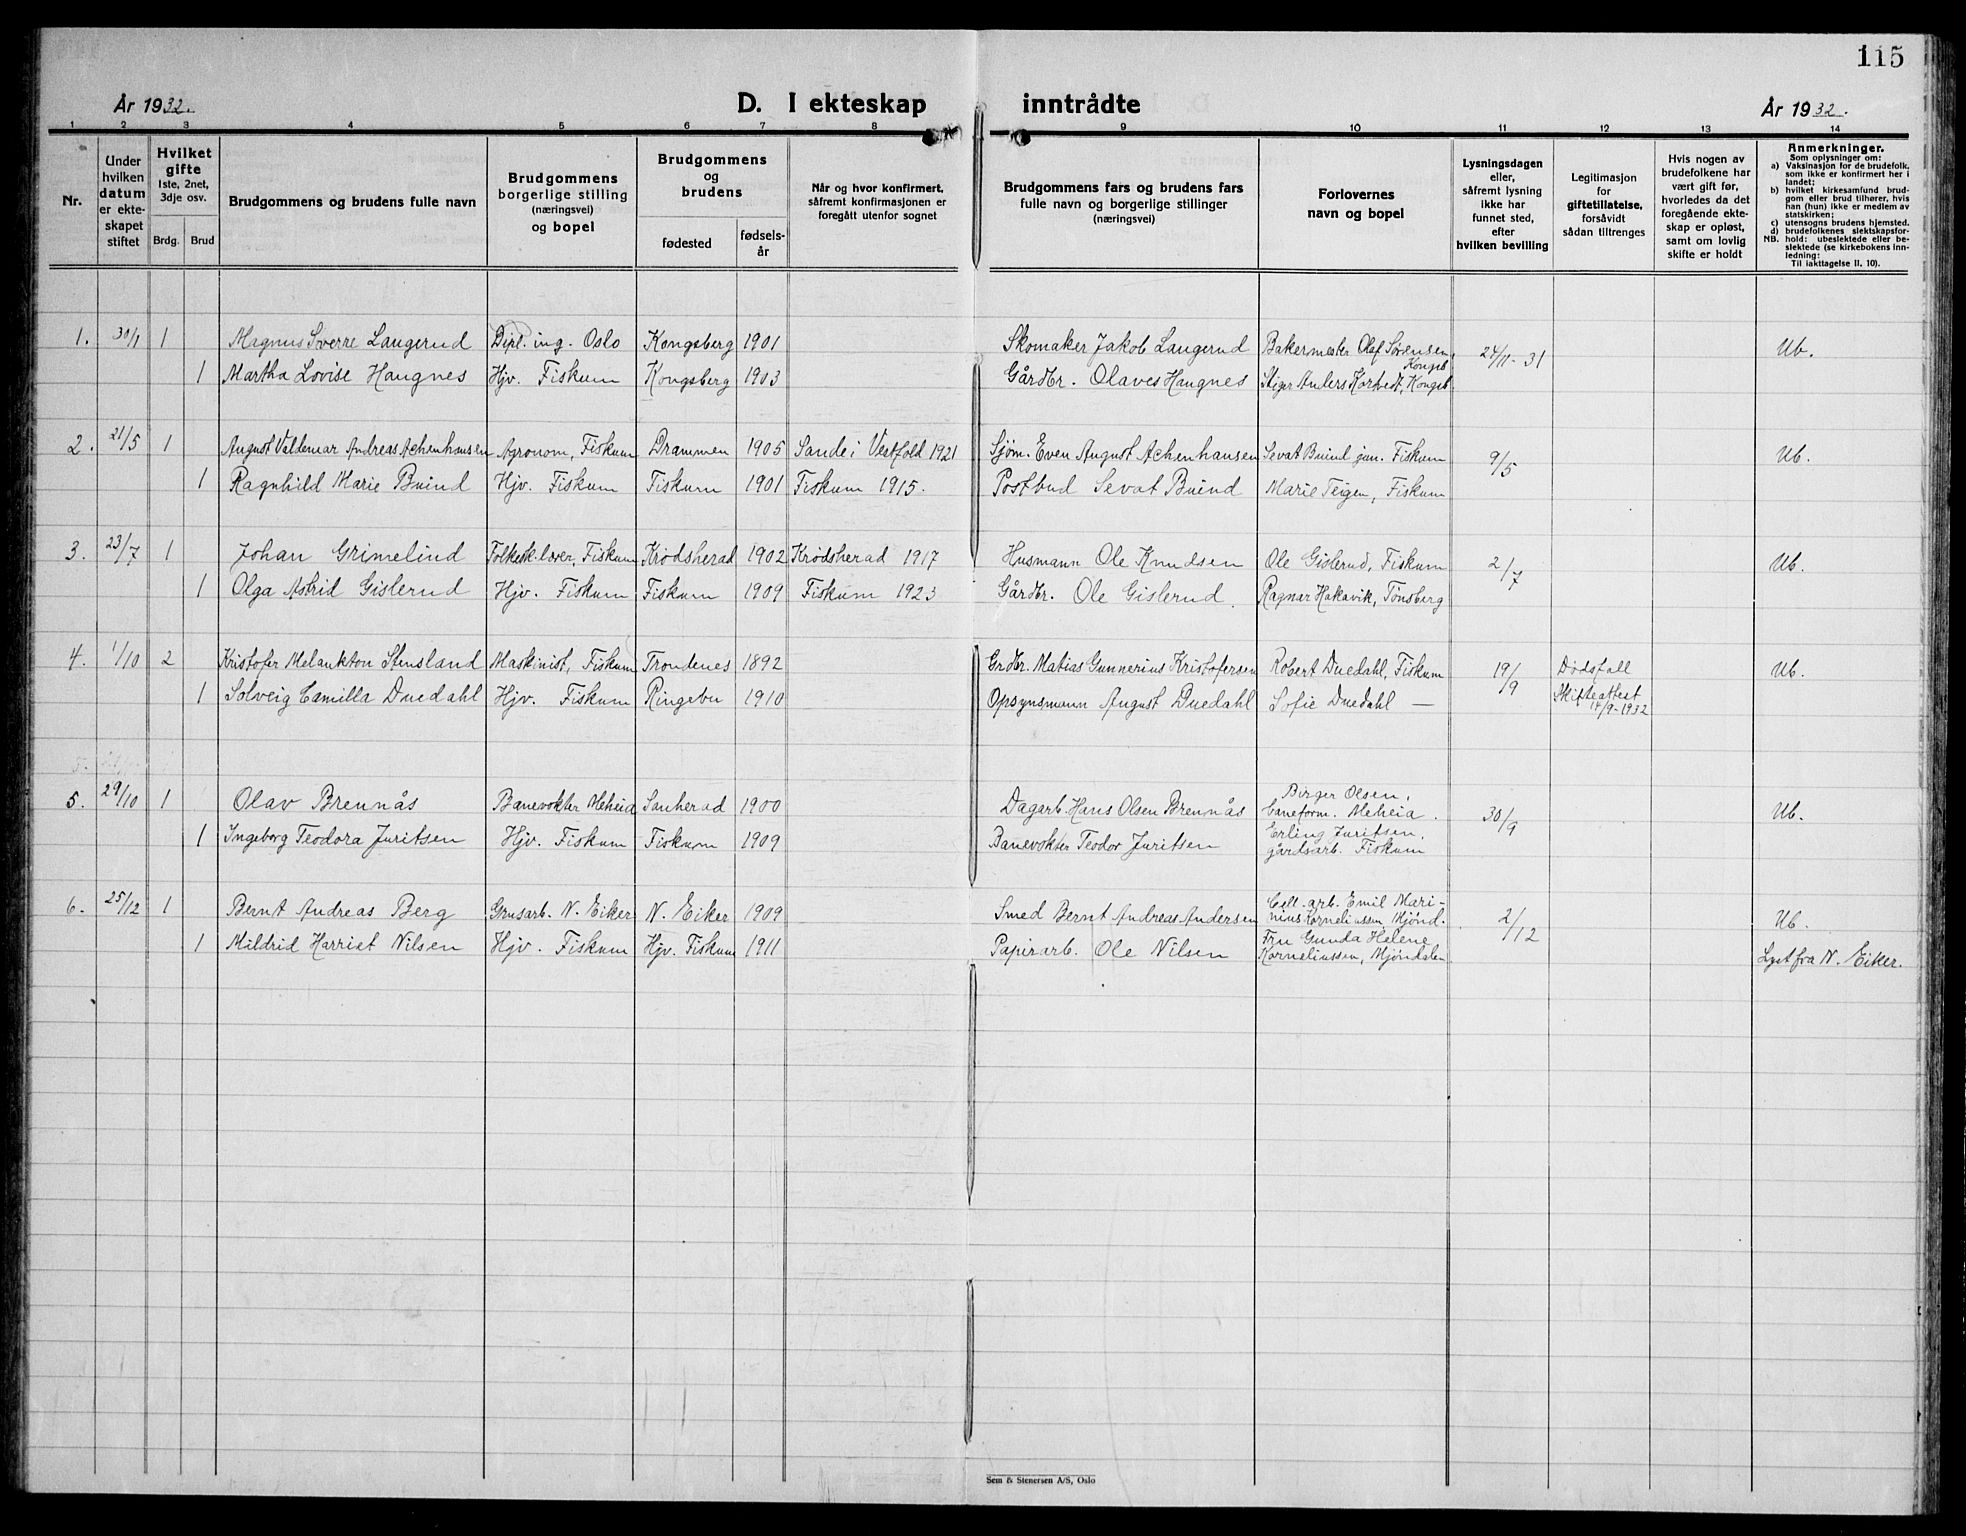 115
År 1932.
D. I ekteskap inntrådte
År 1932.
1 2 3 4 5 6 7 8 9 10 11 12 13 14
Nr.
Under hvilken datum er ekteskapet stiftet
Hvilket gifte
1ste, 2net, 3dje osv.
Brdg. Brud
Brudgommens og brudens fulle navn
Brudgommens borgerlige stilling (næringsvei) og bopel
Brudgommens og brudens
fødested
fødselsår
Når og hvor konfirmert, såfremt konfirmasjonen er foregått utenfor sognet
Brudgommens fars og brudens fars fulle navn og borgerlige stillinger (næringsvei)
Forlovernes navn og bopel
Lysningsdagen eller, såfremt lysning ikke har funnet sted, efter hvilken bevilling
Legitimasjon for giftetillatelse, forsåvidt sådan tiltrenges
Hvis nogen av brudefolkene har vært gift før, hvorledes da det foregående ekteskap er opløst, samt om lovlig skifte er holdt
Anmerkninger.
Som oplysninger om:
a) Vaksinasjon for de brudefolk, som ikke er konfirmert her i landet;
b) hvilket kirkesamfund brudgom eller brud tilhører, hvis han (hun) ikke er medlem av statskirken;
c) utensogns brudens hjemsted.
d) brudefolkenes slektskapsforhold: ubeslektede eller beslektede (se kirkebokens innledning:
NB.
Til iakttagelse II. 10).
1. 30/1 1 Magnus Sverre Langerud Dipl. ing. Oslo Kongsberg 1901 Skomaker Jakob Langerud Bakermester Olaf Sørensen, Kongsb. 24/11-31 Ub.
1 Martha Lovise Haugnes Hjv. Fiskum Kongsberg 1903 Gårdbr. Olaves Haugnes Stiger Anders Kortvedt, Kongsb.
2. 21/5 1 August Valdemar Andreas Achenhausen Agronom, Fiskum Drammen 1905 Sande i Vestfold 1921 Sjøm. Even August Achenhausen Sevat Buind jun. Fiskum 9/5 Ub.
1 Ragnhild Marie Buind Hjv. Fiskum Fiskum 1901 Fiskum 1915. Postbud Sevat Buind Marie Teigen, Fiskum
3. 23/7 1 Johan Grimelind Folkesk.lærer, Fiskum Krødsherad 1902 Krødsherad 1917 Husmann Ole Knudsen Ole Gislerud, Fiskum 2/7 Ub.
1 Olga Astrid Gislerud Hjv. Fiskum Fiskum 1909 Fiskum 1923 Gårdbr. Ole Gislerud. Ragnar Hakavik, Tønsberg
4. 1/10 2 Kristofer Melankton Stensland Maskinist, Fiskum Trondenes 1892 Grdbr. Matias Gunnerius Kristofersen Robert Duedahl, Fiskum 19/9 Dødsfall Ub.
1 Solveig Camilla Duedahl Hjv. Fiskum Ringebu 1910 Opsynsmann August Duedahl Sofie Duedahl — Skifteattest 14/9-1932
5. 29/10 1 Olav Brennås Banevokter Meheia Sauherad 1900 Dagarb. Hans Olsen Brennås Birger Olsen, baneform. Meheia. 30/9 Ub.
1 Ingeborg Teodora Juritsen Hjv. Fiskum Fiskum 1909 Banevokter Teodor Juritsen Erling Juritsen, gårdsarb. Fiskum
6. 25/12 1 Bernt Andreas Berg Grusarb. N. Eiker N. Eiker 1909 Smed Bernt Andreas Andersen Cell. arb. Emil Marinius Korneliussen, Mjønd. 2/12 Ub.
1 Mildrid Harriet Nilsen Hjv. Fiskum Hjv. Fiskum 1911 Papirarb. Ole Nilsen Fru Gunda Helene Korneliussen, Mjøndalen Lyst fra N. Eiker.
Sem & Stenersen A/S, Oslo